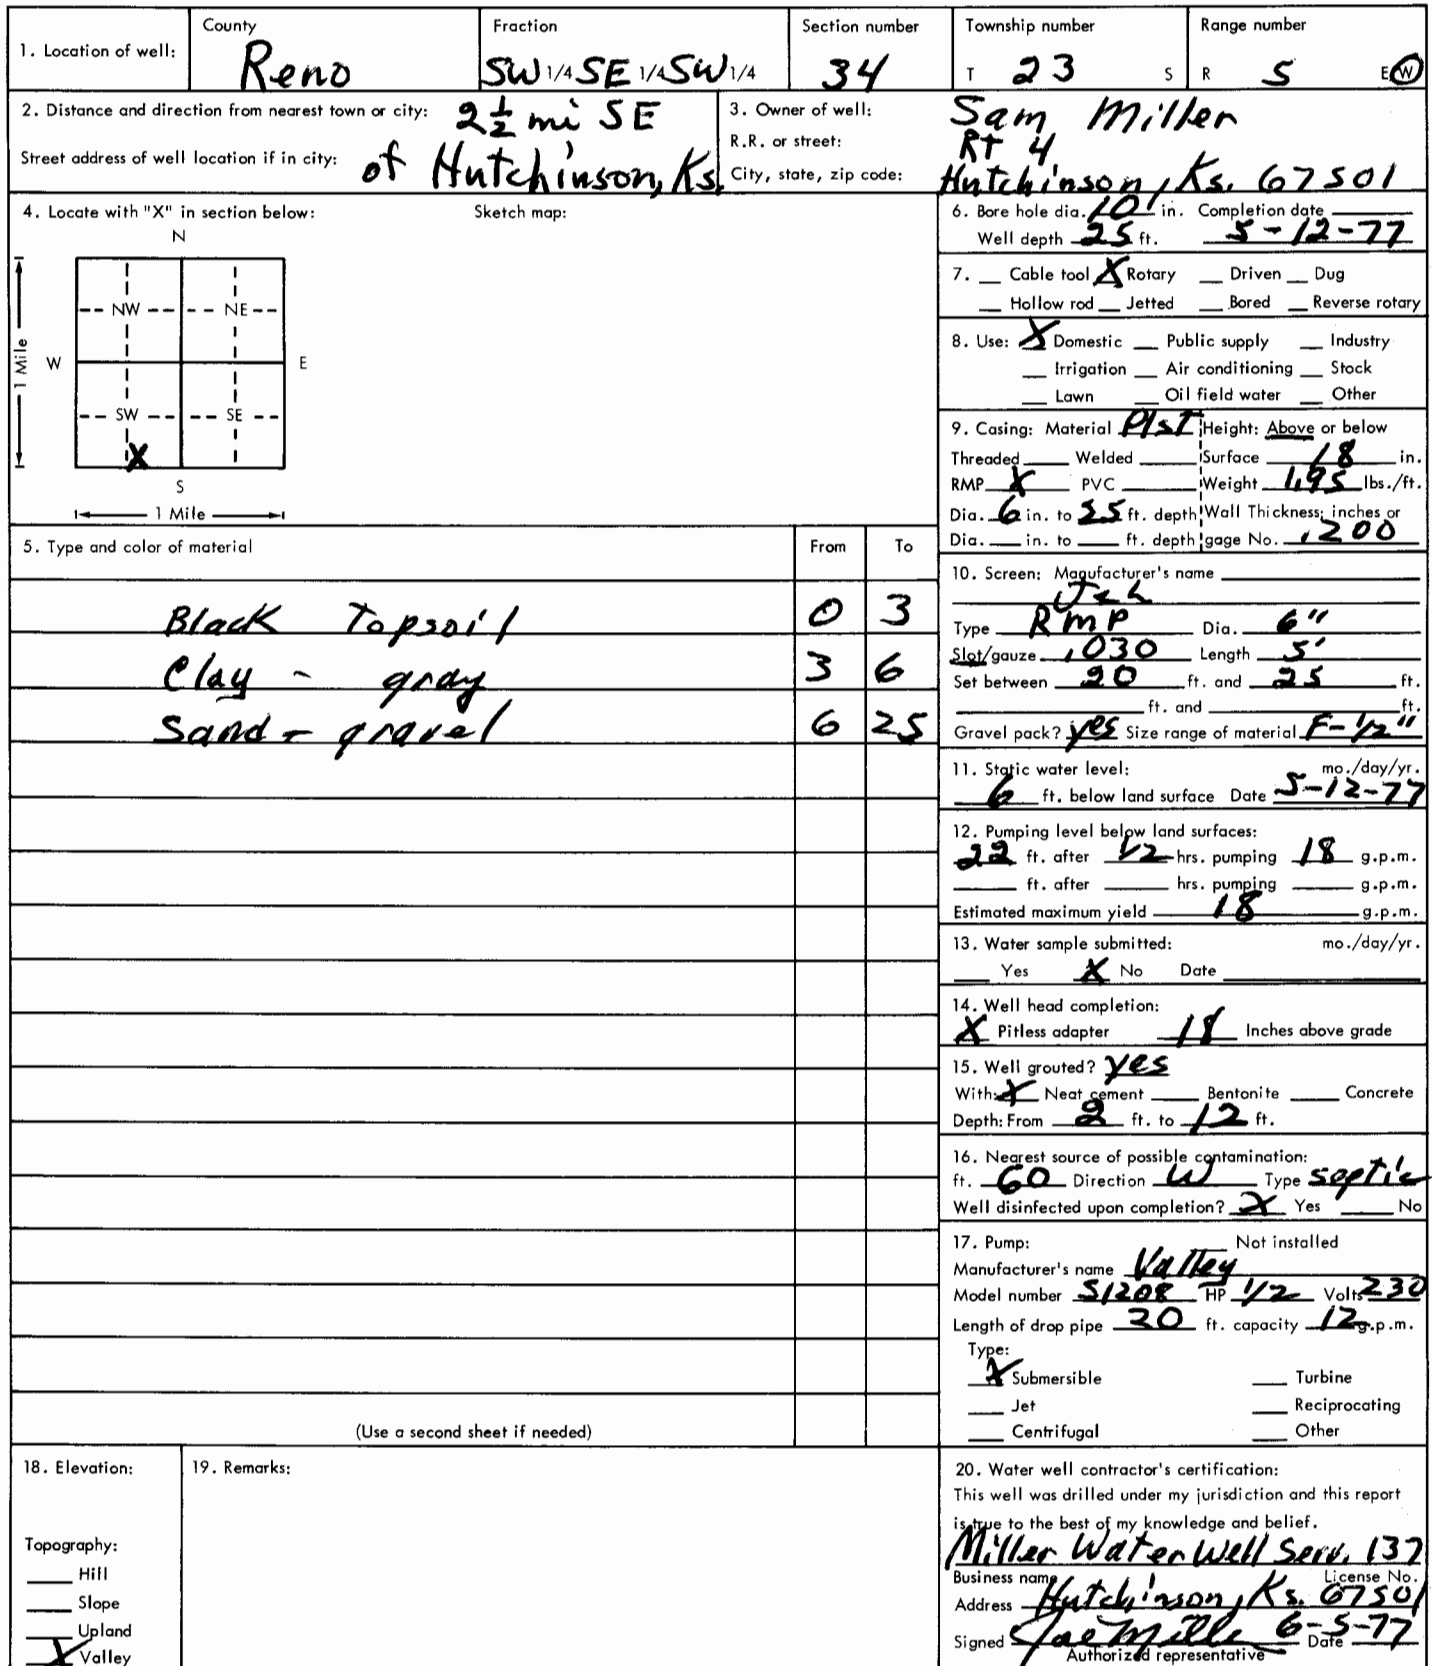 County Fraction Section number Township number Range number
1. Location of well: Reno SW 1/4 SE 1/4 SW 1/4 34 T 23 S R 5 E W
2. Distance and direction from nearest town or city: 2 1/2 mi SE
Street address of well location if in city: of Hutchinson, Ks.
3. Owner of well: Sam Miller
R.R. or street: Rt 4
City, state, zip code: Hutchinson, Ks. 67501
4. Locate with "X" in section below: Sketch map:
N
NW NE
W E
1 Mile
SW SE
X
S
1 Mile
5. Type and color of material From To
Black Topsoil 0 3
Clay - gray 3 6
Sand - gravel 6 25
(Use a second sheet if needed)
6. Bore hole dia. 10 in. Completion date
Well depth 25 ft. 5-12-77
7. Cable tool X Rotary Driven Dug
Hollow rod Jetted Bored Reverse rotary
8. Use: X Domestic Public supply Industry
Irrigation Air conditioning Stock
Lawn Oil field water Other
9. Casing: Material Plst Height: Above or below
Threaded Welded Surface 18 in.
RMP X PVC Weight 1.95 lbs./ft.
Dia. 6 in. to 25 ft. depth Wall Thickness: inches or
Dia. in. to ft. depth gage No. .200
10. Screen: Manufacturer's name
Type RMP Dia. 6"
Slot/gauze .030 Length 5'
Set between 20 ft. and 25 ft.
ft. and ft.
Gravel pack? yes Size range of material F-1/2"
11. Static water level: mo./day/yr.
6 ft. below land surface Date 5-12-77
12. Pumping level below land surfaces:
22 ft. after 1/2 hrs. pumping 18 g.p.m.
ft. after hrs. pumping g.p.m.
Estimated maximum yield 18 g.p.m.
13. Water sample submitted: mo./day/yr.
Yes X No Date
14. Well head completion:
X Pitless adapter 18 Inches above grade
15. Well grouted? yes
With: X Neat cement Bentonite Concrete
Depth: From 2 ft. to 12 ft.
16. Nearest source of possible contamination:
ft. 60 Direction W Type septic
Well disinfected upon completion? X Yes No
17. Pump: Not installed
Manufacturer's name Valley
Model number S1208 HP 1/2 Volts 230
Length of drop pipe 20 ft. capacity 12 g.p.m.
Type:
X Submersible Turbine
Jet Reciprocating
Centrifugal Other
18. Elevation:
Topography:
Hill
Slope
Upland
X Valley
19. Remarks:
20. Water well contractor's certification:
This well was drilled under my jurisdiction and this report
is true to the best of my knowledge and belief.
Miller Water Well Serv. 137
Business name License No.
Address Hutchinson, Ks. 67501
Signed Joe Miller Date 6-5-77
Authorized representative